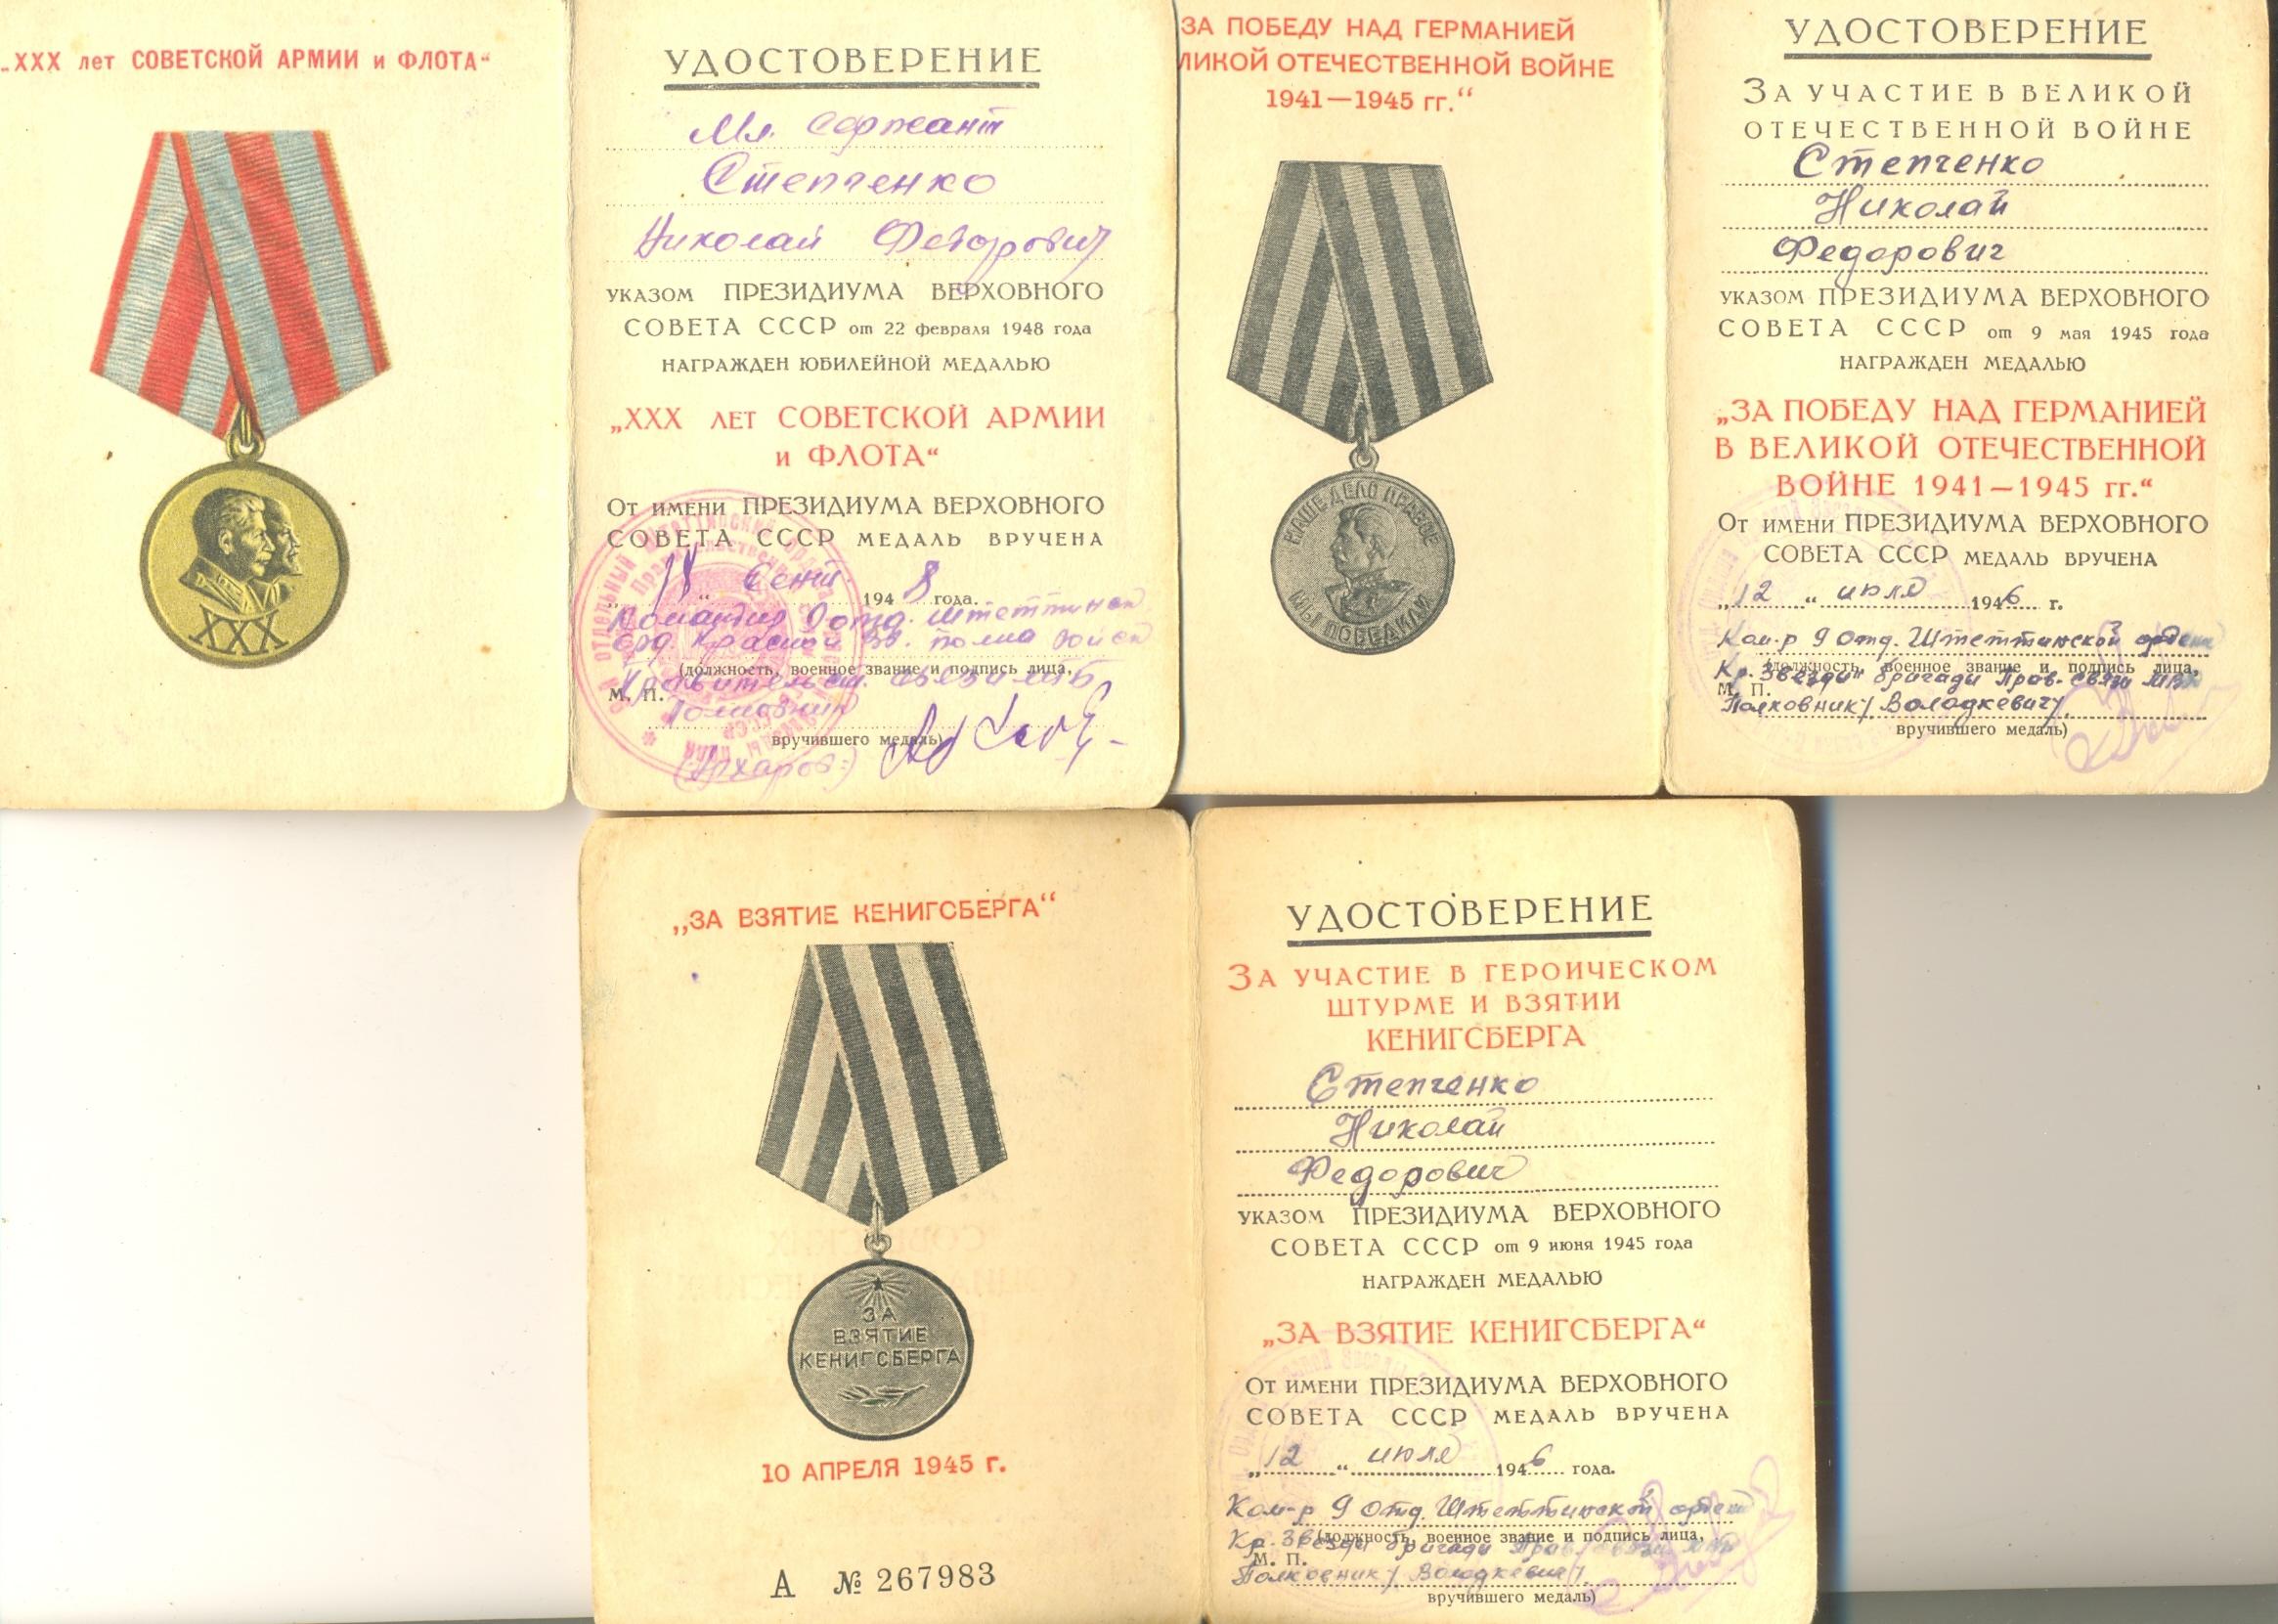 „XXX лет СОВЕТСКОЙ АРМИИ и ФЛОТА“
XXX
УДОСТОВЕРЕНИЕ
Мл. сержант
Степченко
Николай Федорович
УКАЗОМ ПРЕЗИДИУМА ВЕРХОВНОГО
СОВЕТА СССР от 22 февраля 1948 года
НАГРАЖДЕН ЮБИЛЕЙНОЙ МЕДАЛЬЮ
„XXX ЛЕТ СОВЕТСКОЙ АРМИИ
и ФЛОТА“
ОТ ИМЕНИ ПРЕЗИДИУМА ВЕРХОВНОГО
СОВЕТА СССР МЕДАЛЬ ВРУЧЕНА
„18“ Сент. 1948 года.
Командир 9 отд. Штеттинск.
орд. Красной Зв. полка войск
(должность, военное звание и подпись лица,
Правительств. связи МГБ
М. П.
Полковник
вручившего медаль)
(Архаров)
ЗА ПОБЕДУ НАД ГЕРМАНИЕЙ
ЛИКОЙ ОТЕЧЕСТВЕННОЙ ВОЙНЕ
1941—1945 гг.“
НАШЕ ДЕЛО ПРАВОЕ
МЫ ПОБЕДИЛИ
УДОСТОВЕРЕНИЕ
ЗА УЧАСТИЕ В ВЕЛИКОЙ
ОТЕЧЕСТВЕННОЙ ВОЙНЕ
Степченко
Николай
Федорович
УКАЗОМ ПРЕЗИДИУМА ВЕРХОВНОГО
СОВЕТА СССР от 9 мая 1945 года
НАГРАЖДЕН МЕДАЛЬЮ
„ЗА ПОБЕДУ НАД ГЕРМАНИЕЙ
В ВЕЛИКОЙ ОТЕЧЕСТВЕННОЙ
ВОЙНЕ 1941—1945 гг.“
ОТ ИМЕНИ ПРЕЗИДИУМА ВЕРХОВНОГО
СОВЕТА СССР МЕДАЛЬ ВРУЧЕНА
„12“ июля 1946 г.
Ком-р 9 Отд. Штеттинской ордена
(должность, военное звание и подпись лица,
Кр. Звезды бригады Прав. связи МВД
М. П.
Полковник / Володкевич /
вручившего медаль)
„ЗА ВЗЯТИЕ КЕНИГСБЕРГА“
ЗА
ВЗЯТИЕ
КЕНИГСБЕРГА
10 АПРЕЛЯ 1945 г.
А № 267983
УДОСТОВЕРЕНИЕ
ЗА УЧАСТИЕ В ГЕРОИЧЕСКОМ
ШТУРМЕ И ВЗЯТИИ
КЕНИГСБЕРГА
Степченко
Николай
Федорович
УКАЗОМ ПРЕЗИДИУМА ВЕРХОВНОГО
СОВЕТА СССР от 9 июня 1945 года
НАГРАЖДЕН МЕДАЛЬЮ
„ЗА ВЗЯТИЕ КЕНИГСБЕРГА“
ОТ ИМЕНИ ПРЕЗИДИУМА ВЕРХОВНОГО
СОВЕТА СССР МЕДАЛЬ ВРУЧЕНА
„12“ июля 1946 года.
Ком-р 9 Отд. Штеттинской орден
(должность, военное звание и подпись лица,
Кр. Звезды бригады Прав. связи МВД
М. П.
Полковник / Володкевич /
вручившего медаль)